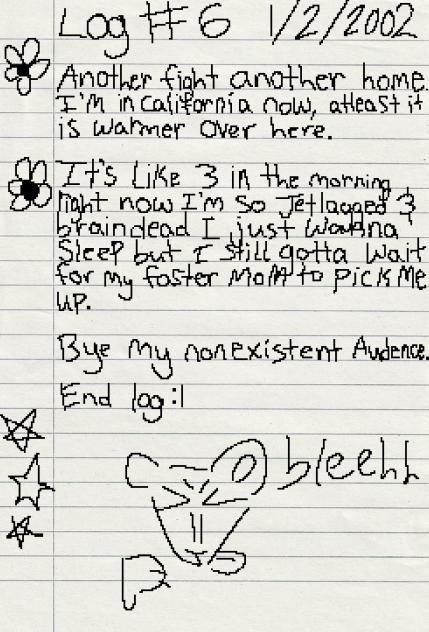 Log # 6 1/2/2002
Another fight another home.
I'm in california now, atleast it
is warmer over here.
It's Like 3 in the morning
right now I'm so Jetlagged &
braindead I just wanna
Sleep but I still gotta wait
for my foster mom to pick me
up.
Bye my nonexistent Audence.
End log :|
bleehh